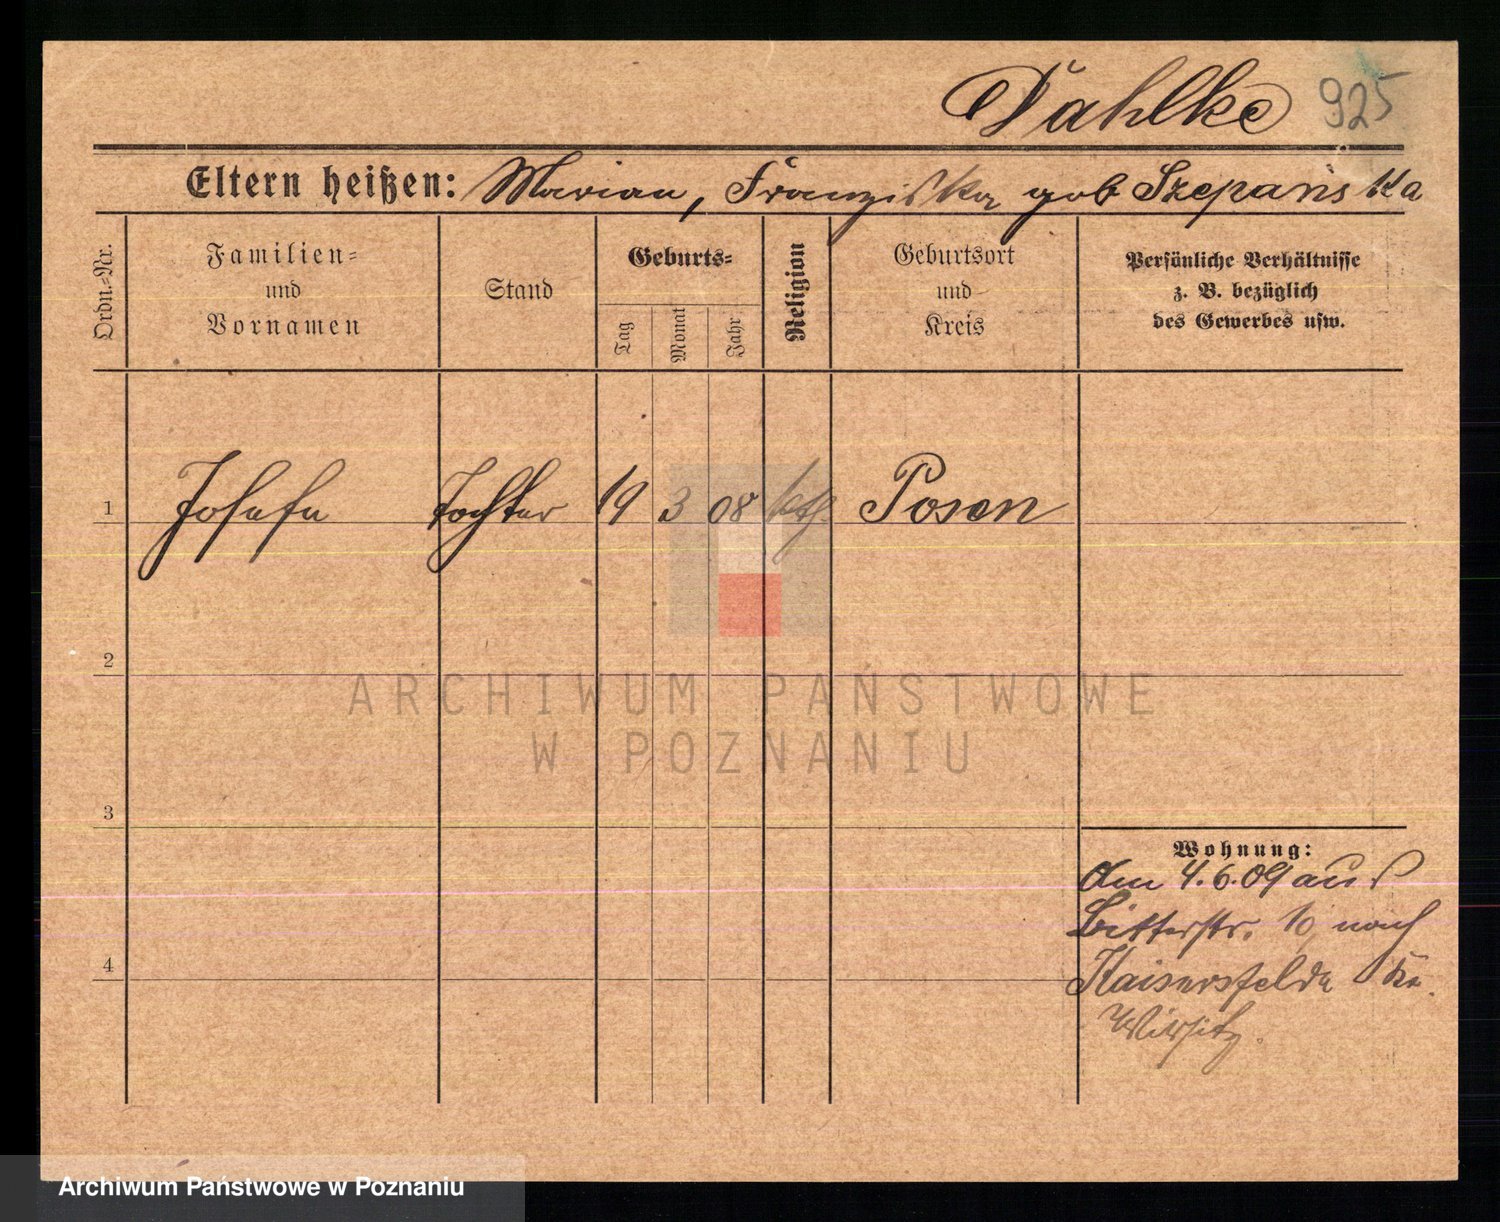 Dahlke 925
Eltern heißen: Marian, Franziska geb Szepanska
Ordn.-Nr.
Familien-
und
Vornamen
Stand
Geburts-
Tag
Monat
Jahr
Religion
Geburtsort
und
Kreis
Persönliche Verhältnisse
z. B. bezüglich
des Gewerbes usw.
1 Josefa Tochter 19 3 08 kth. Posen
2
ARCHIWUM PAŃSTWOWE
W POZNANIU
3
Wohnung:
Am 4.6.09 aus
Bitterstr. 10 nach
4
Kaisersfelde Kr.
Wirsitz.
Archiwum Państwowe w Poznaniu